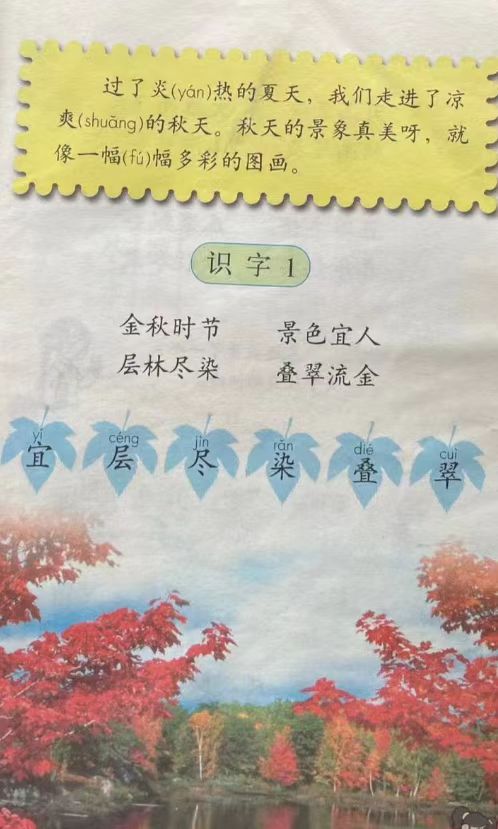 过了炎(yán)热的夏天，我们走进了凉
爽(shuǎng)的秋天。秋天的景象真美呀，就
像一幅(fú)幅多彩的图画。
识字1
金秋时节 景色宜人
层林尽染 叠翠流金
yí céng jìn rǎn dié cuì
宜 层 尽 染 叠 翠